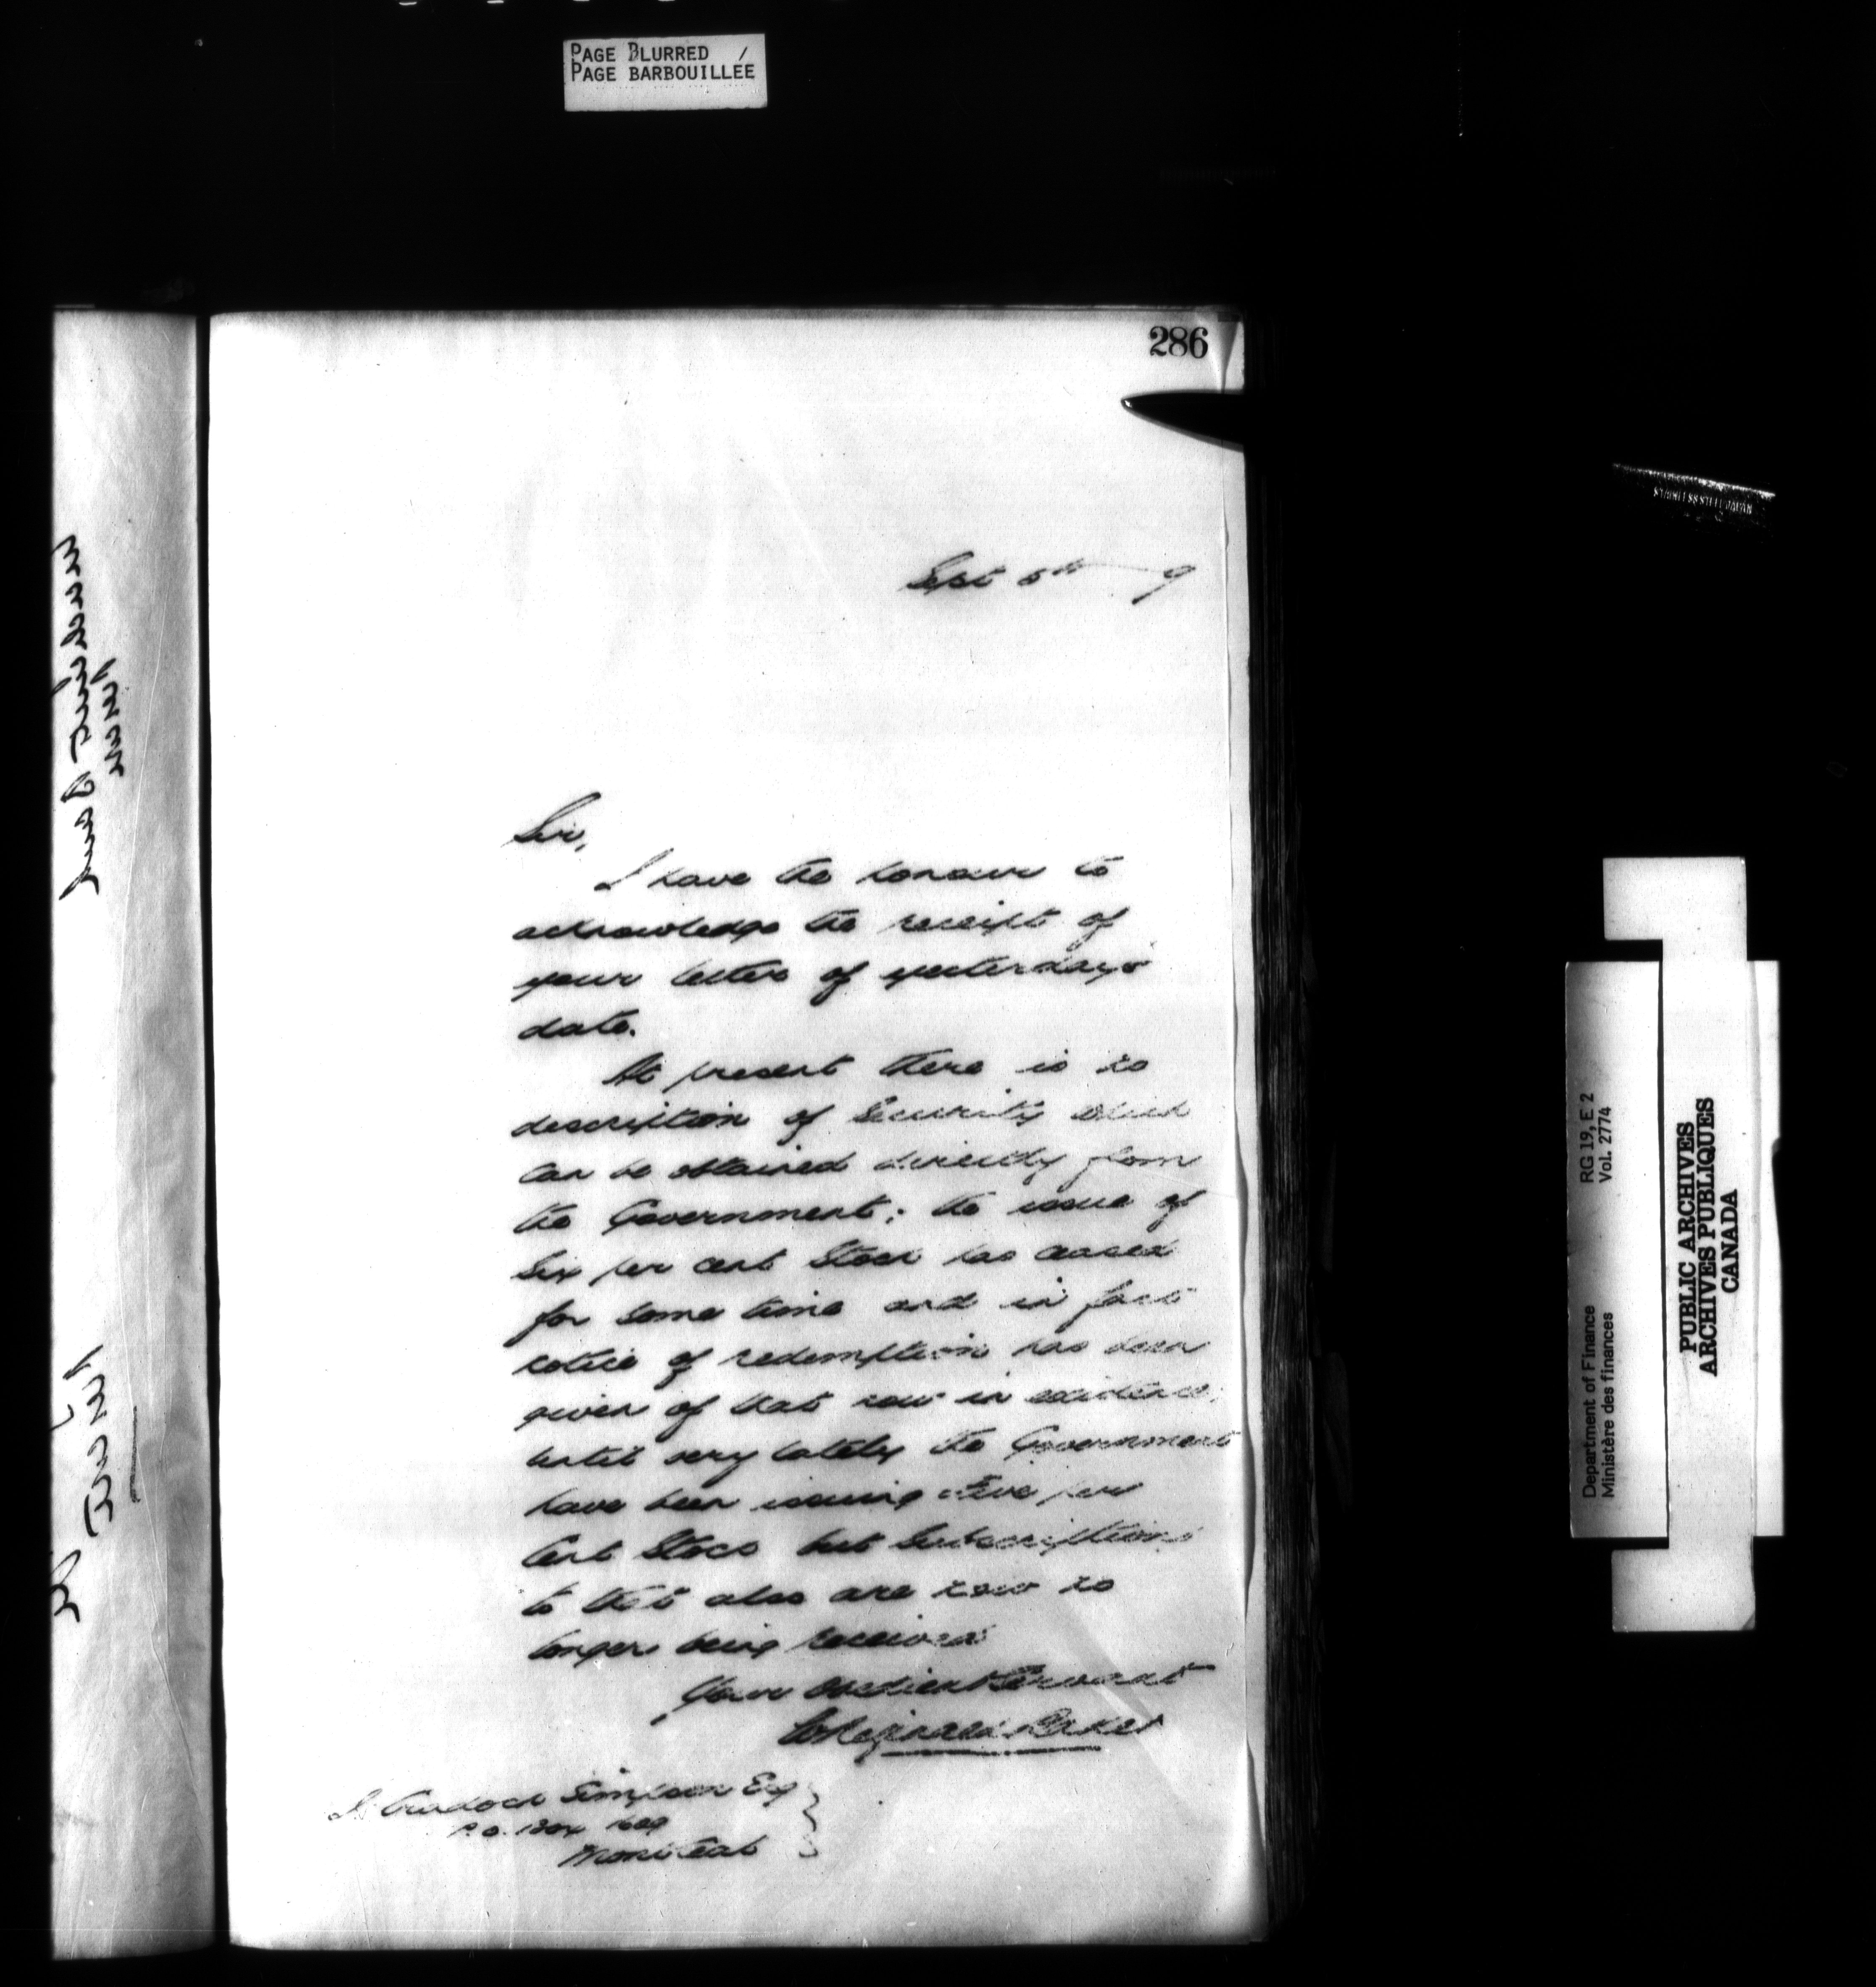 PAGE BLURRED /
PAGE BARBOUILLEE
286
Sept 5th 9
Sir,
I have the honour to
acknowledge the receipt of
your letter of yesterday's
date.
At present there is no
description of Security which
can be obtained directly from
the Government; the issue of
Six per cent Stock has ceased
for some time and in fact
notice of redemption has been
given of that now in existence;
until very lately the Government
have been issuing Five per
Cent Stock but Subscriptions
to that also are now no
longer being received
Your Obedient Servant
Reginald Baker
J. Cradock Simpson Esq
P.O. Box
Montreal
Department of Finance RG 19, E 2
Ministère des finances Vol. 2774
PUBLIC ARCHIVES
ARCHIVES PUBLIQUES
CANADA